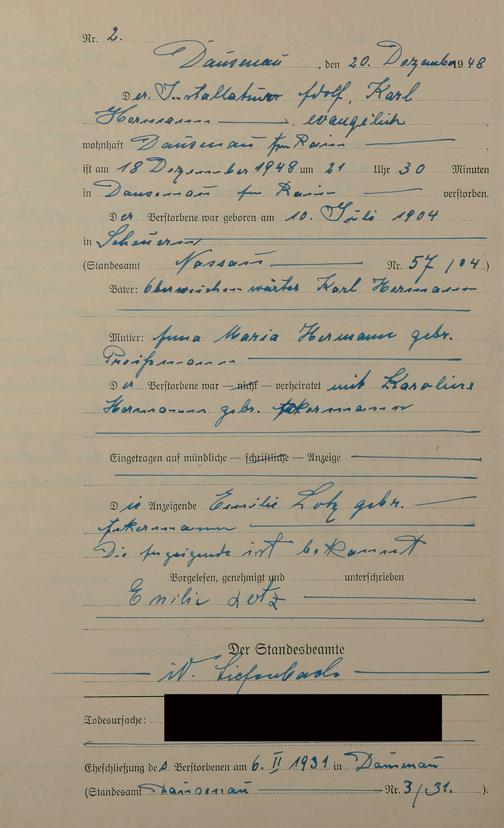 Nr. 2.
Dausenau, den 20. Dezember 1948
Der Installateur Adolf, Karl
Hermann, evangelisch
wohnhaft Dausenau
ist am 18 Dezember 1948 um 21 Uhr 30 Minuten
in Dausenau verstorben.
Der Verstorbene war geboren am 10. Juli 1904
in Scheuern
(Standesamt Nassau Nr. 57/04)
Vater: Oberweichenwärter Karl Hermann
Mutter: Anna Maria Hermann gebr.
Der Verstorbene war — nicht — verheiratet mit Karoline
Hermann gebr. Ackermann
Eingetragen auf mündliche — schriftliche — Anzeige
Die Anzeigende Emilie Lotz gebr.
Ackermann
Die Anzeigende ist bekannt
Vorgelesen, genehmigt und unterschrieben
Emilie Lotz
Der Standesbeamte
Todesursache:
Eheschließung des Verstorbenen am 6. II 1931 in Dausenau
(Standesamt Dausenau Nr. 3/31.)